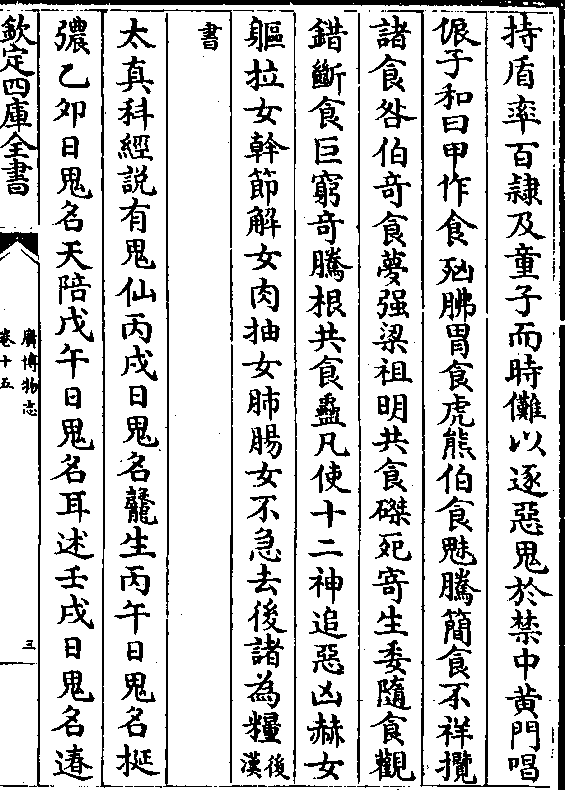 持盾率百隷及童子而時儺以逐惡鬼於禁中黄門唱
侲子和曰甲作食𣧑胇胃食虎熊伯食魅騰簡食不祥攬
諸食咎伯奇食夢强梁祖明共食磔死寄生委隨食觀
錯斷食巨窮奇騰根共食蠱凡使十二神追惡凶赫女
軀拉女幹節解女肉抽女肺腸女不急去後諸為糧後漢
書
太真科經説有鬼仙丙戌日鬼名生丙午日鬼名挻
乙卯日鬼名天陪戊午日鬼名耳述壬戌日鬼名
欽定四庫全書
廣博物志
卷十五
三